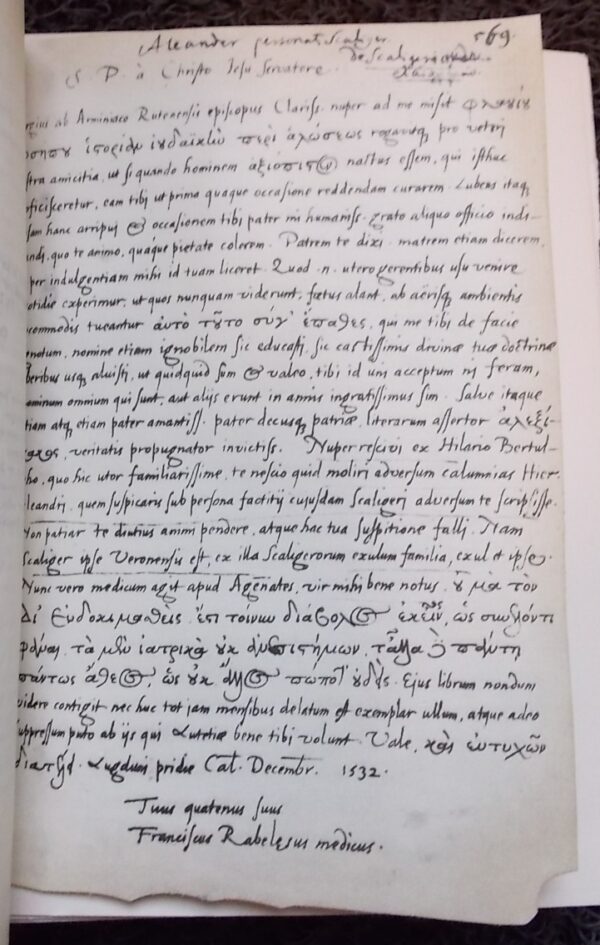 Aleander personatus Scaliger. 569.
de Scaligero
S. P. à Christo Iesu Servatore
rgius ab Arminiaco Rutenensis episcopus Clariss. nuper ad me misit φλαουίου
ἱστορίαν ἰουδαϊκὴν περὶ ἁλώσεως rogavitq pro veteri
stra amicitia, ut si quando hominem ἀξιόπιστον nactus essem, qui isthuc
oficisceretur, eam tibi ut prima quaque occasione reddendam curarem. Lubens itaq
sam hanc arripui & occasionem tibi pater mi humaniss. grato aliquo officio indi-
andi, quo te animo, quaque pietate colerem. Patrem te dixi, matrem etiam dicerem,
per indulgentiam mihi id tuam liceret. Quod .n. utero gerentibus usu venire
otidie experimur, ut quos nunquam viderunt, fœtus alant, ab aërisq ambientis
commodis tueantur αὐτὸ τοῦτο σύγ' ἔπαθες, qui me tibi de facie
gnotum, nomine etiam ignobilem sic educasti, sic castissimis divinæ tuæ doctrinæ
beribus usq aluisti, ut quidquid sum & valeo, tibi id uni acceptum ni feram,
ominum omnium qui sunt, aut alijs erunt in annis ingratissimus sim. Salve itaque
tiam atq etiam pater amantiss. pater decusq patriæ, literarum assertor ἀλεξί-
κακος, veritatis propugnator invictiss. Nuper rescivi ex Hilario Bertul-
ho, quo hic utor familiarissime, te nescio quid moliri adversum calumnias Hier.
leandri, quem suspicaris sub persona factitij cujusdam Scaligeri adversum te scripsisse.
Non patiar te diutius animi pendere, atque hac tua suspitione falli. Nam
Scaliger ipse Veronensis est, ex illa Scaligerorum exulum familia, exul et ipse.
Nunc vero medicum agit apud Agennates, vir mihi bene notus, οὐ μὰ τὸν
Δί' εὐδοκιμαθεὶς. ἔστι τοίνυν διάβολος ἐκεῖνος, ὡς συνελόντι
φάναι, τὰ μὲν ἰατρικὰ οὐκ ἀνεπιστήμων, τἆλλα δὲ πάντη
πάντως ἄθεος, ὡς οὐκ ἄλλος πώποτ' οὐδείς. Ejus librum nondum
videre contigit nec huc tot jam mensibus delatum est exemplar ullum, atque adeo
suppressum puto ab ijs qui Lutetiæ bene tibi volunt. Vale, καὶ εὐτυχῶν
διατέλει. Lugduni pridie Cal. Decembr. 1532.
Tuus quatenus suus
Franciscus Rabelæsus medicus.